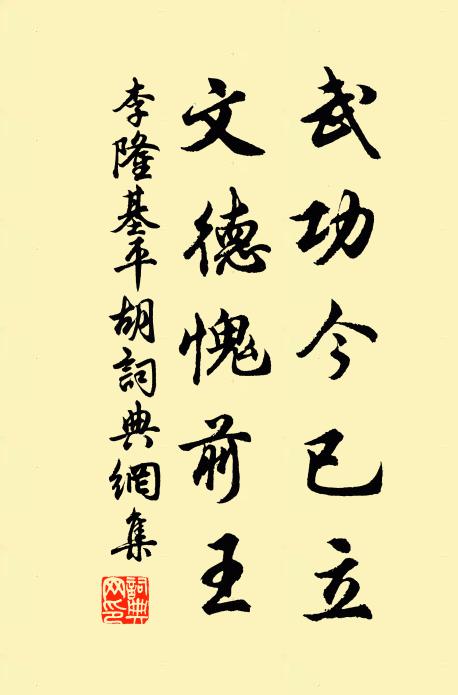 武功今已立
文德愧前王
李隆基平胡詞典網集
詞典網印